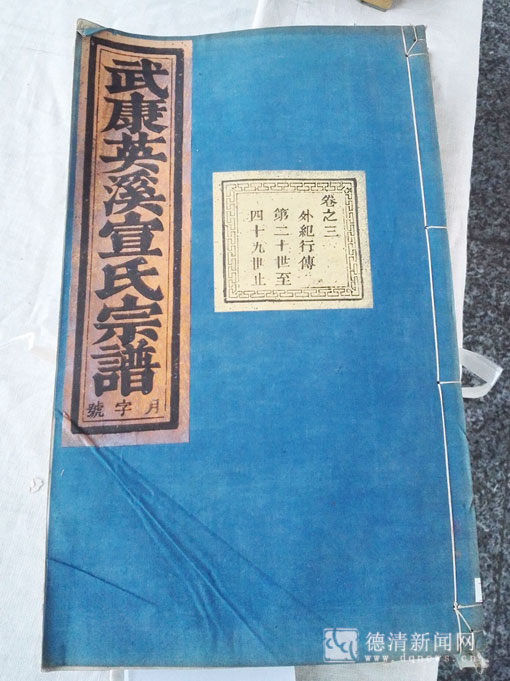 武康英溪宣氏宗譜
月字號
卷之三
外紀行傳
第二十世至
四十九世止
德清新闻网
www.dqnews.cn